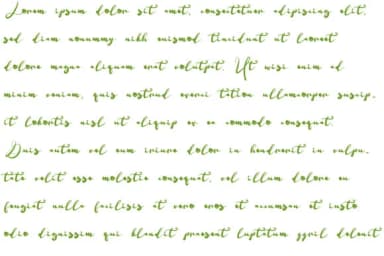 Lorem ipsum dolor sit amet, consectetuer adipiscing elit,
sed diam nonummy nibh euismod tincidunt ut laoreet
dolore magna aliquam erat volutpat. Ut wisi enim ad
minim veniam, quis nostrud exerci tation ullamcorper suscip.
it lobortis nisl ut aliquip ex ea commodo consequat.
Duis autem vel eum iriure dolor in hendrerit in vulpu.
tate velit esse molestie consequat, vel illum dolore eu
feugiat nulla facilisis at vero eros et accumsan et iusto
odio dignissim qui blandit praesent luptatum zzril delenit